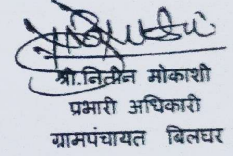 श्री.नितीन मोकाशी
प्रभारी अधिकारी
ग्रामपंचायत बिलघर